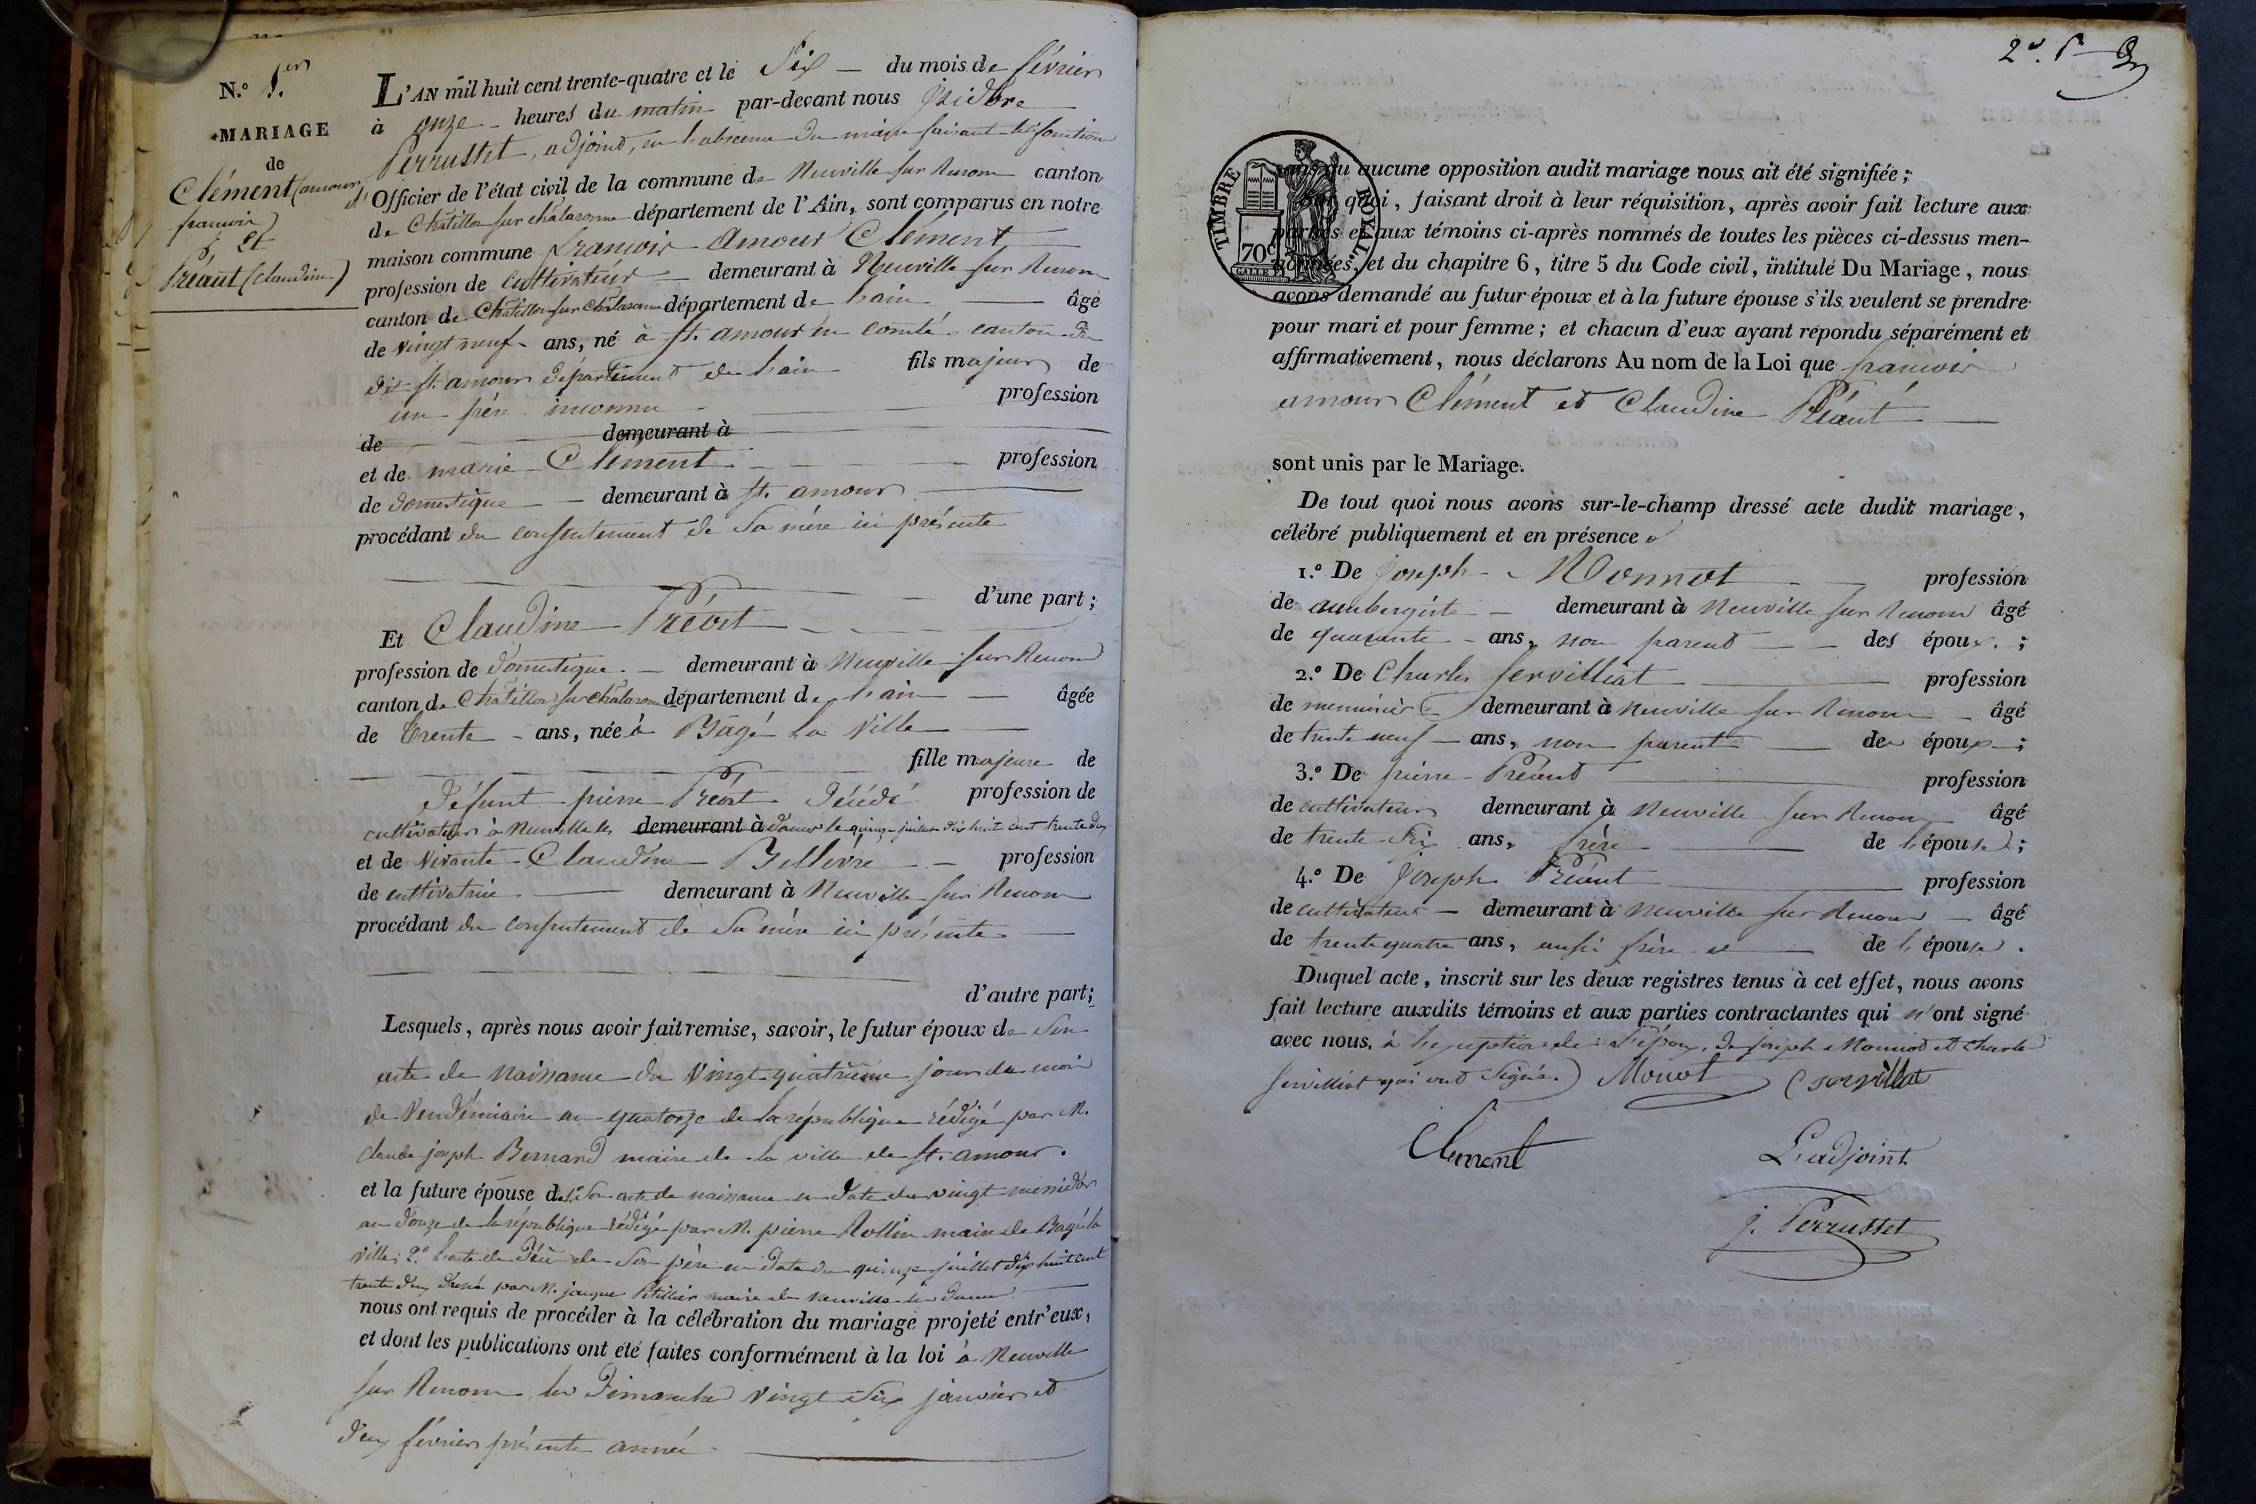 N.º 1.er
MARIAGE
de
Clément (amour
françois)
Et
Préaut (Claudine)
L'AN mil huit cent trente-quatre et le Six du mois de février
à onze heures du matin par-devant nous Isidore
Perrusset, adjoint, en l'absence du maire faisant les fonctions
d'Officier de l'état civil de la commune de Neuville sur Renom canton
de Châtillon sur chalaronne département de l'Ain, sont comparus en notre
maison commune François Amour Clément
profession de cultivateur demeurant à Neuville sur Renom
canton de Châtillon sur Chalaronne département de l'ain âgé
de vingt neuf ans, né à St. amour en comté canton du
dit St. amour département de l'ain fils majeur de
un père inconnu profession
de demeurant à
et de marie Clément profession
de domestique demeurant à St. amour
procédant du consentement de Sa mère ici présente
d'une part ;
Et Claudine Préost
profession de domestique demeurant à Neuville sur Renom
canton de Châtillon sur Chalaronne département de l'ain âgée
de trente ans, née à Bâgé la Ville
fille majeure de
défunt pierre Préost décédé profession de
cultivateur à Neuville les demeurant à dames le quinze juillet dix huit cent trente deux
et de vivante Claudine Bellevre profession
de cultivatrice demeurant à Neuville sur Renom
procédant du consentement de Sa mère ici présente
d'autre part ;
Lesquels, après nous avoir fait remise, savoir, le futur époux de Son
acte de naissance du vingt quatrième jour du mois
de Vendémiaire an quatorze de la république rédigé par M.
Claude joseph Bernard maire de la ville de St. amour.
et la future épouse de 1.º Son acte de naissance en date du vingt messidor
an douze de la république rédigé par M. pierre Rollin maire de Bagé la
ville; 2.º l'acte de décès de Son père en date du quinze juillet dix huit cent
trente deux dressé par M. jacques maire de Neuville les dames.
nous ont requis de procéder à la célébration du mariage projeté entr'eux,
et dont les publications ont été faites conformément à la loi à Neuville
sur Renom les Dimanches vingt Six janvier et
deux février présente année
2.e
TIMBRE ROYAL
70c
sans qu'aucune opposition audit mariage nous ait été signifiée ;
Sur quoi, faisant droit à leur réquisition, après avoir fait lecture aux
parties et aux témoins ci-après nommés de toutes les pièces ci-dessus men-
tionnées, et du chapitre 6, titre 5 du Code civil, intitulé Du Mariage, nous
avons demandé au futur époux et à la future épouse s'ils veulent se prendre
pour mari et pour femme ; et chacun d'eux ayant répondu séparément et
affirmativement, nous déclarons Au nom de la Loi que françois
amour Clément et Claudine Préaut
sont unis par le Mariage.
De tout quoi nous avons sur-le-champ dressé acte dudit mariage,
célébré publiquement et en présence
1.º De Joseph Monnot profession
de aubergiste demeurant à Neuville sur Renom âgé
de quarante ans, non parent des époux ;
2.º De Charles Servilliat profession
de menuisier demeurant à Neuville sur Renom âgé
de trente neuf ans, non parent des époux ;
3.º De pierre Préaut profession
de cultivateur demeurant à Neuville sur Renom âgé
de trente Six ans, frère de l'épouse ;
4.º De Joseph Préaut profession
de cultivateur demeurant à Neuville sur Renom âgé
de trente quatre ans, aussi frère de l'épouse.
Duquel acte, inscrit sur les deux registres tenus à cet effet, nous avons
fait lecture auxdits témoins et aux parties contractantes qui n'ont signé
avec nous, à l'exception de l'époux, de joseph Monnot et Charles
Servilliat qui ont Signés. Monot C servillat
Clement
L'adjoint
j. Perrusset